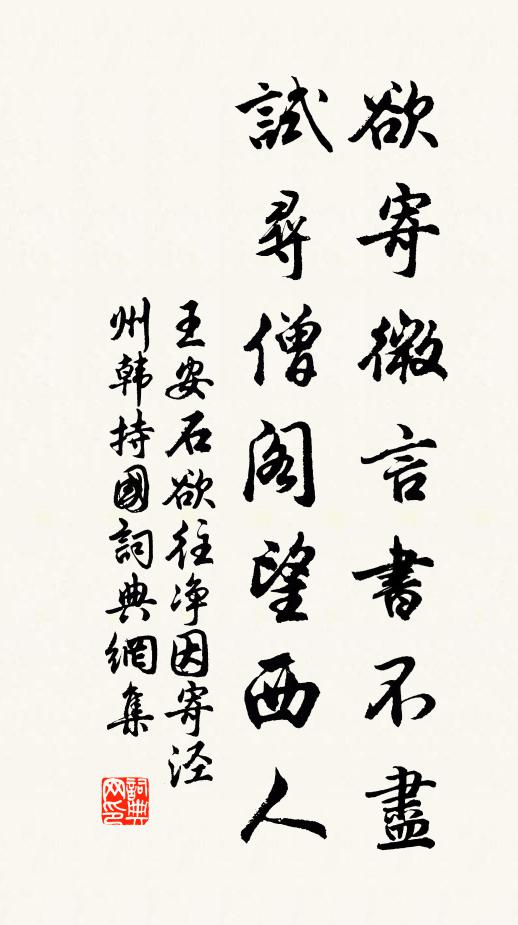 欲寄微言書不盡
試尋僧閣望西人
王安石欲往净因寄泾
州韩持國詞典網集
詞典
网印